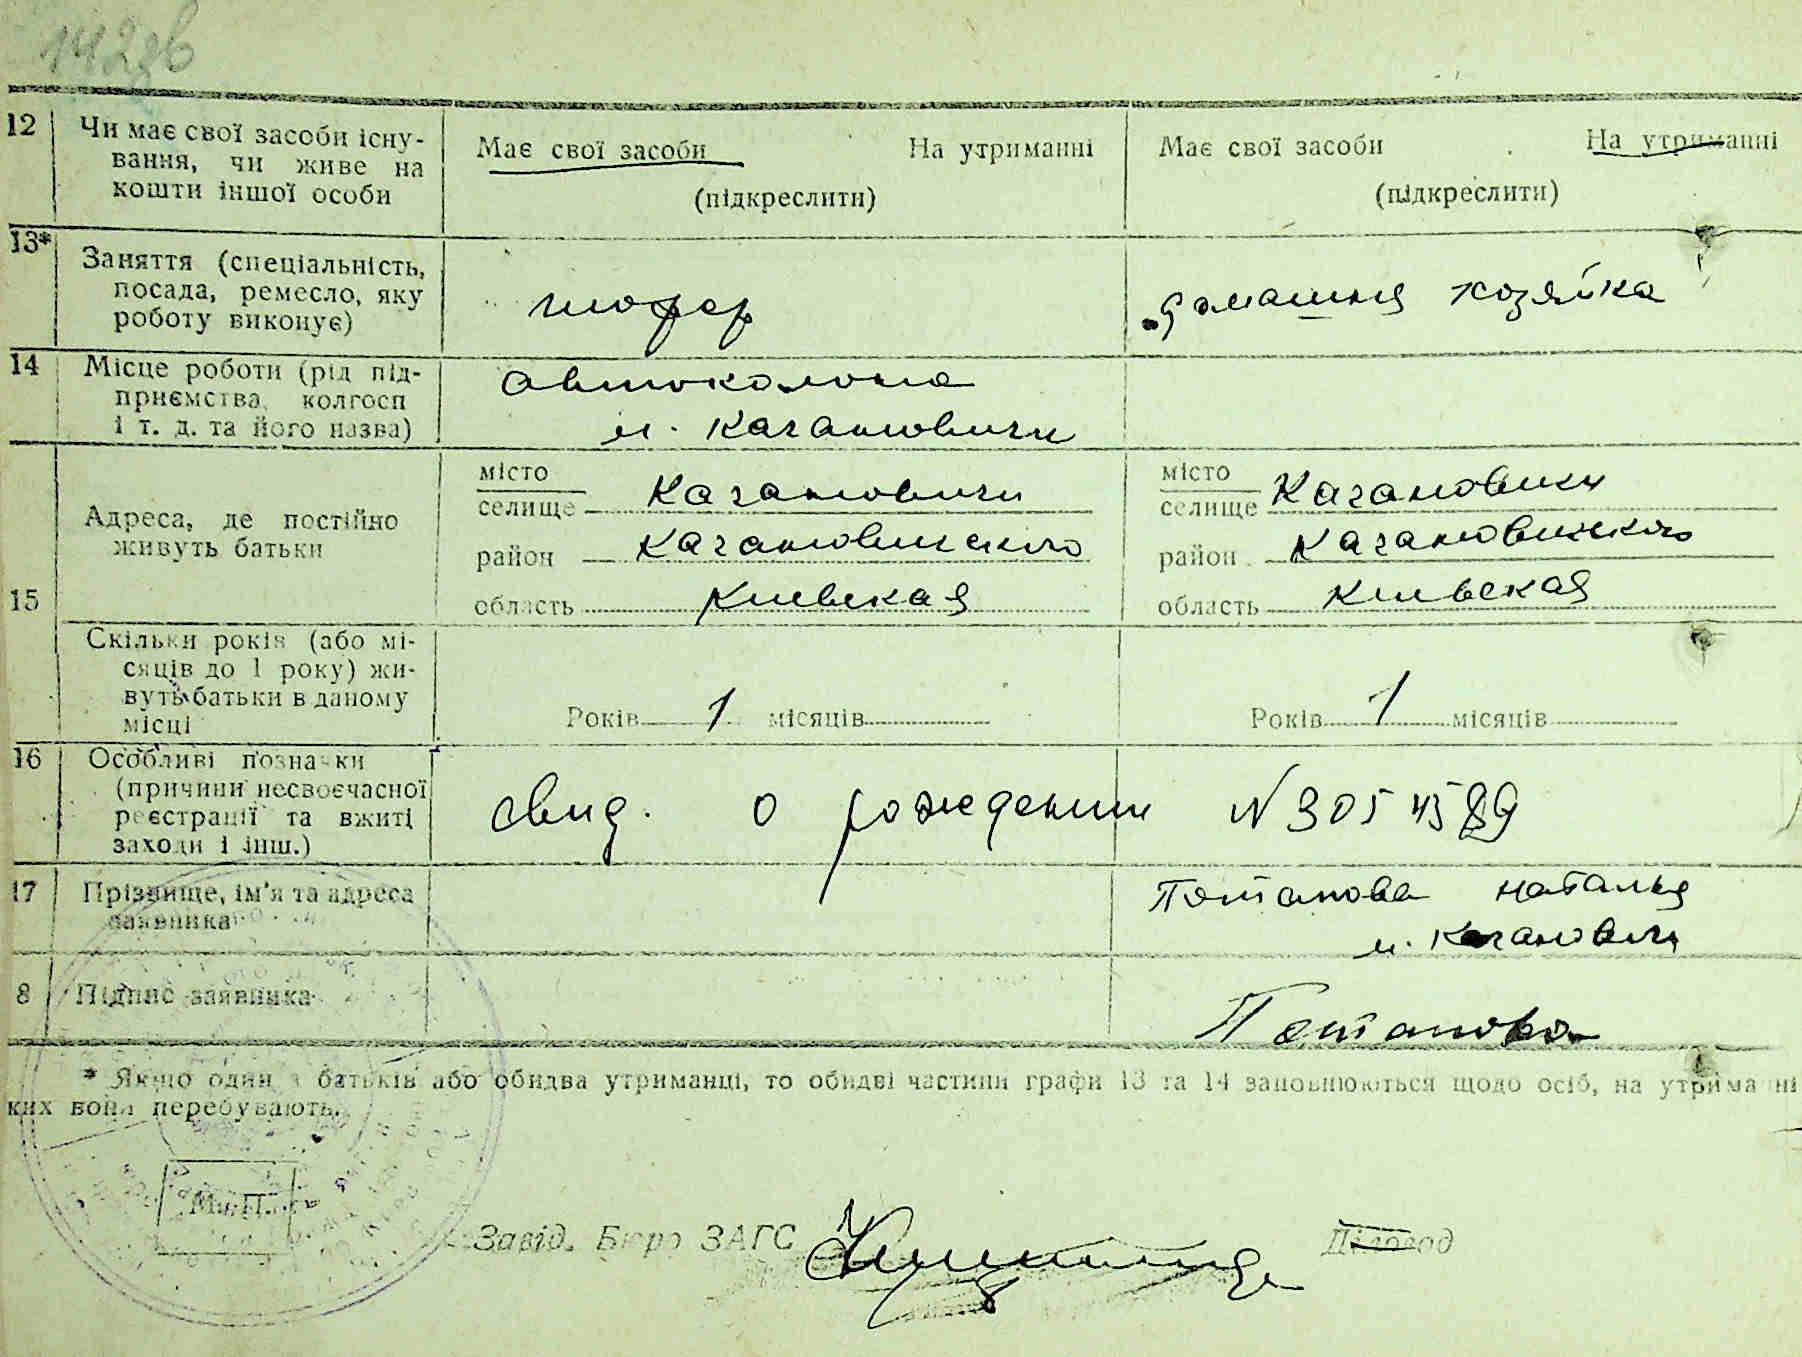 142зв
12 Чи має свої засоби існу-
вання, чи живе на
кошти іншої особи
Має свої засоби На утриманні
(підкреслити)
Має свої засоби На утриманні
(підкреслити)
13* Заняття (спеціальність,
посада, ремесло, яку
роботу виконує)
шофер
домашня хозяйка
14 Місце роботи (рід під-
приємства, колгосп
і т. д. та його назва)
автоколона
м. Кагановичи
15 Адреса, де постійно
живуть батьки
місто
селище Кагановичи
район Кагановичского
область Киевская
місто
селище Кагановичи
район Кагановичского
область Киевская
Скільки років (або мі-
сяців до 1 року) жи-
вуть батьки в даному
місці
Років 1 місяців
Років 1 місяців
16 Особливі позначки
(причини несвоєчасної
реєстрації та вжиті
заходи і інш.)
свид. о рождении N 305 4589
17 Прізвище, ім'я та адреса
заявника
Потапова Наталья
м. Кагановичи
8 Підпис заявника
Потапова
* Якщо один з батьків або обидва утриманці, то обидві частини графи 13 та 14 заповнюються щодо осіб, на утриманні
ких вони перебувають.
М. П.
Завід. Бюро ЗАГС
Діловод